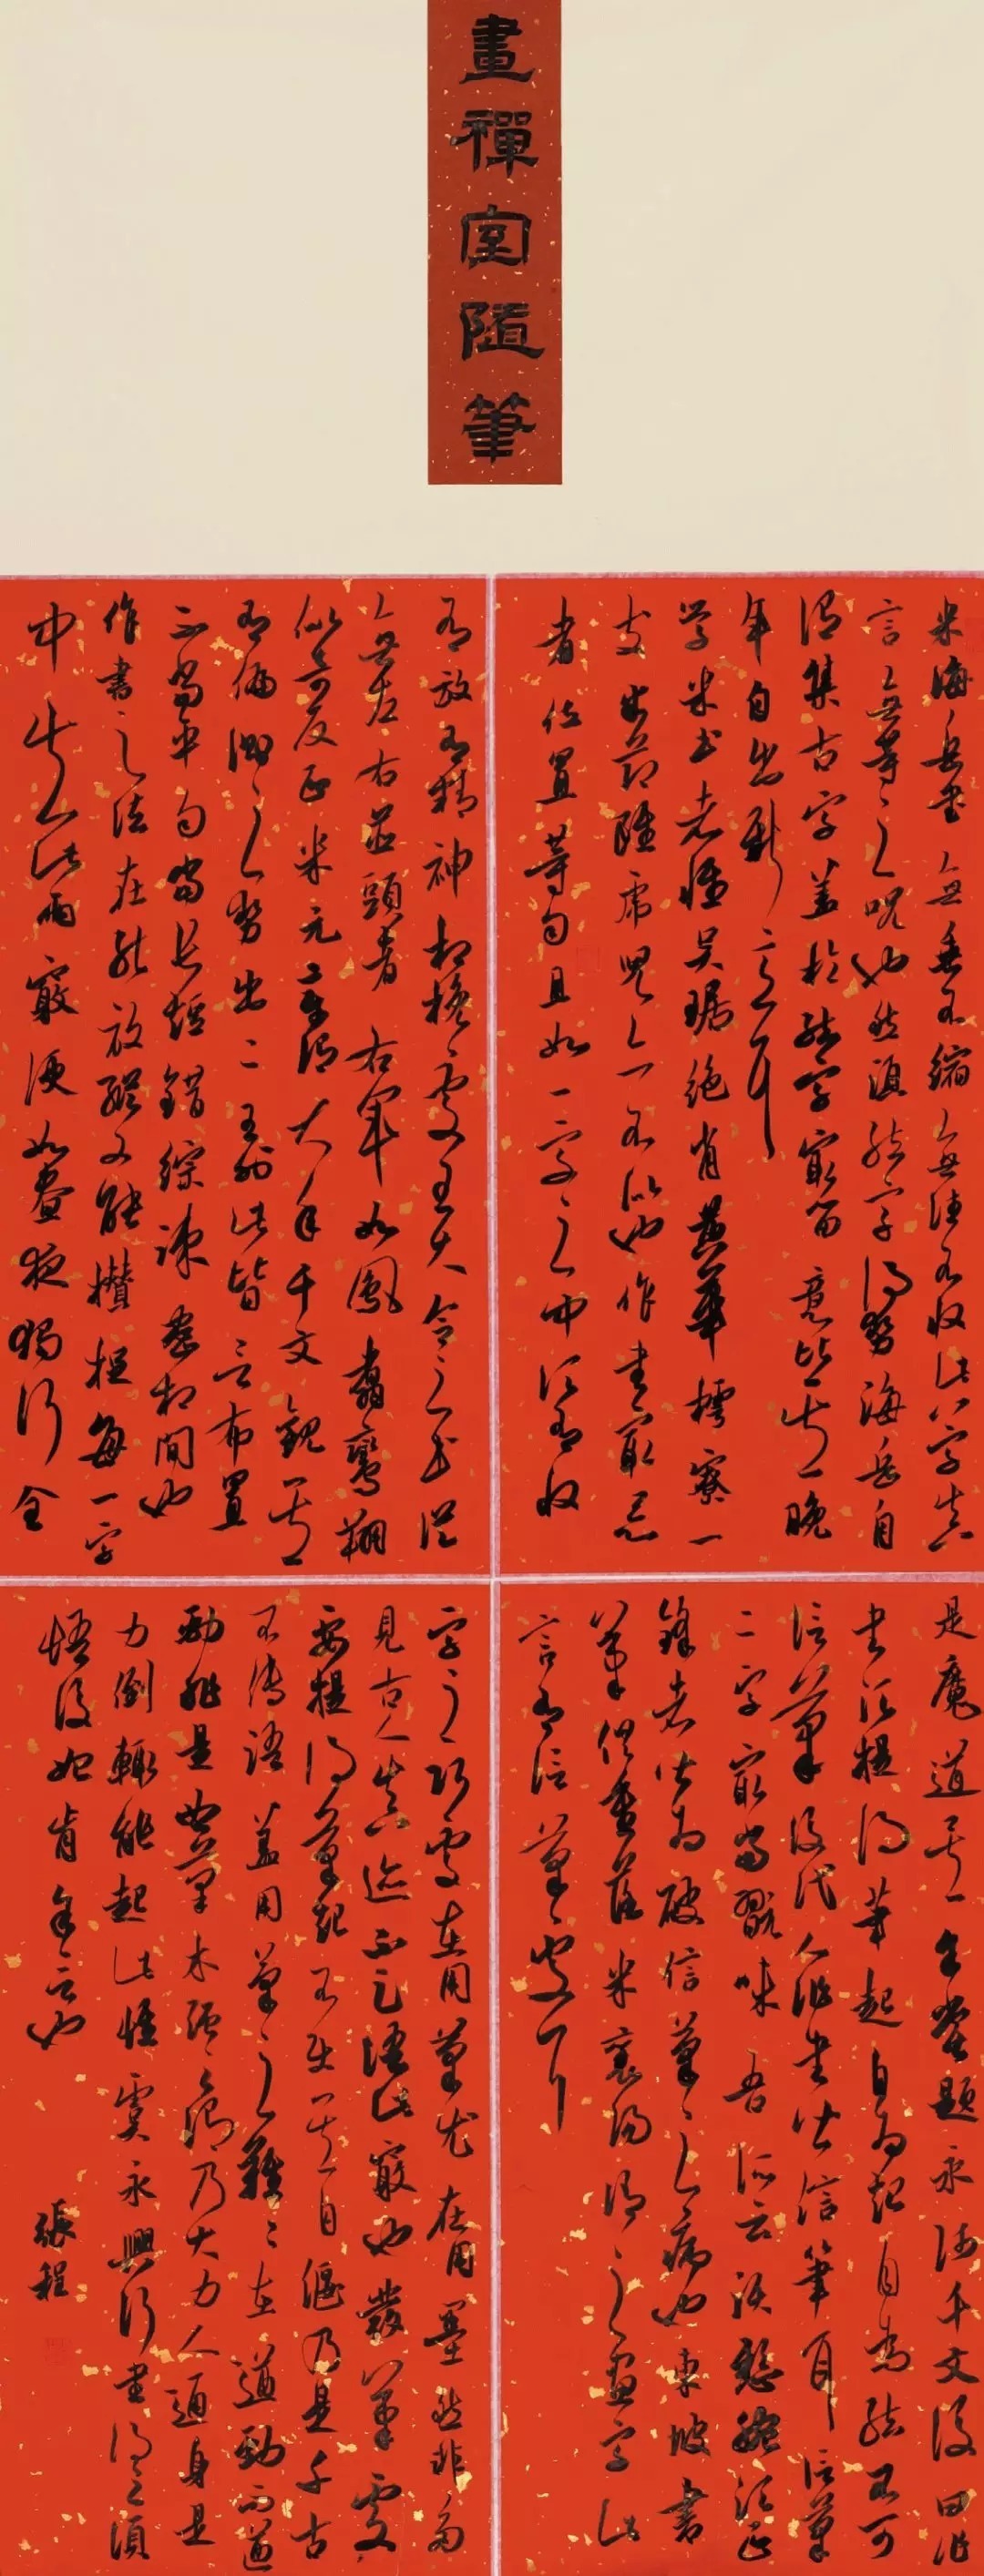 畫禪室隨筆
米海岳書無垂不縮無往不收此八字真
言無等等之呪也然須結字得勢海岳自
謂集古字蓋於結字最留意比其晚
年自出新意耳
学米書者惟吴琚絶肖黄華樗寮一
支半節雖虎兒亦不似也作書最忌
者位置等匀且如一字之中須有收
有放有精神相挽處王大令之書從
無左右並頭者右軍如鳳翥鸞翔
似奇反正米元章謂大年千文觀其
有偏側之勢出二王外此皆言布置
不當平匀當長短錯綜疎密相間也
作書之法在能放縱又能攢捉每一字
中失此兩竅便如晝夜獨行全
是魔道矣余嘗題永師千文後曰作
書須提得筆起自為起自為結不可
信筆後代人作書皆信筆耳信筆
二字最當翫味吾所云須懸腕須正
鋒者皆為破信筆之病也東坡書
筆俱重落米襄陽謂之畫字此
言有信筆處耳
字之巧處在用筆尤在用墨然非多
見古人真迹不足語此竅也發筆處
要提得筆起不使其自偃乃是千古
不傳語蓋用筆之難難在遒勁而遒
勁非是怒筆木强之謂乃大力人通身是
力倒輒能起此惟虞永興行書得之須
悟後始肯余言也
張程